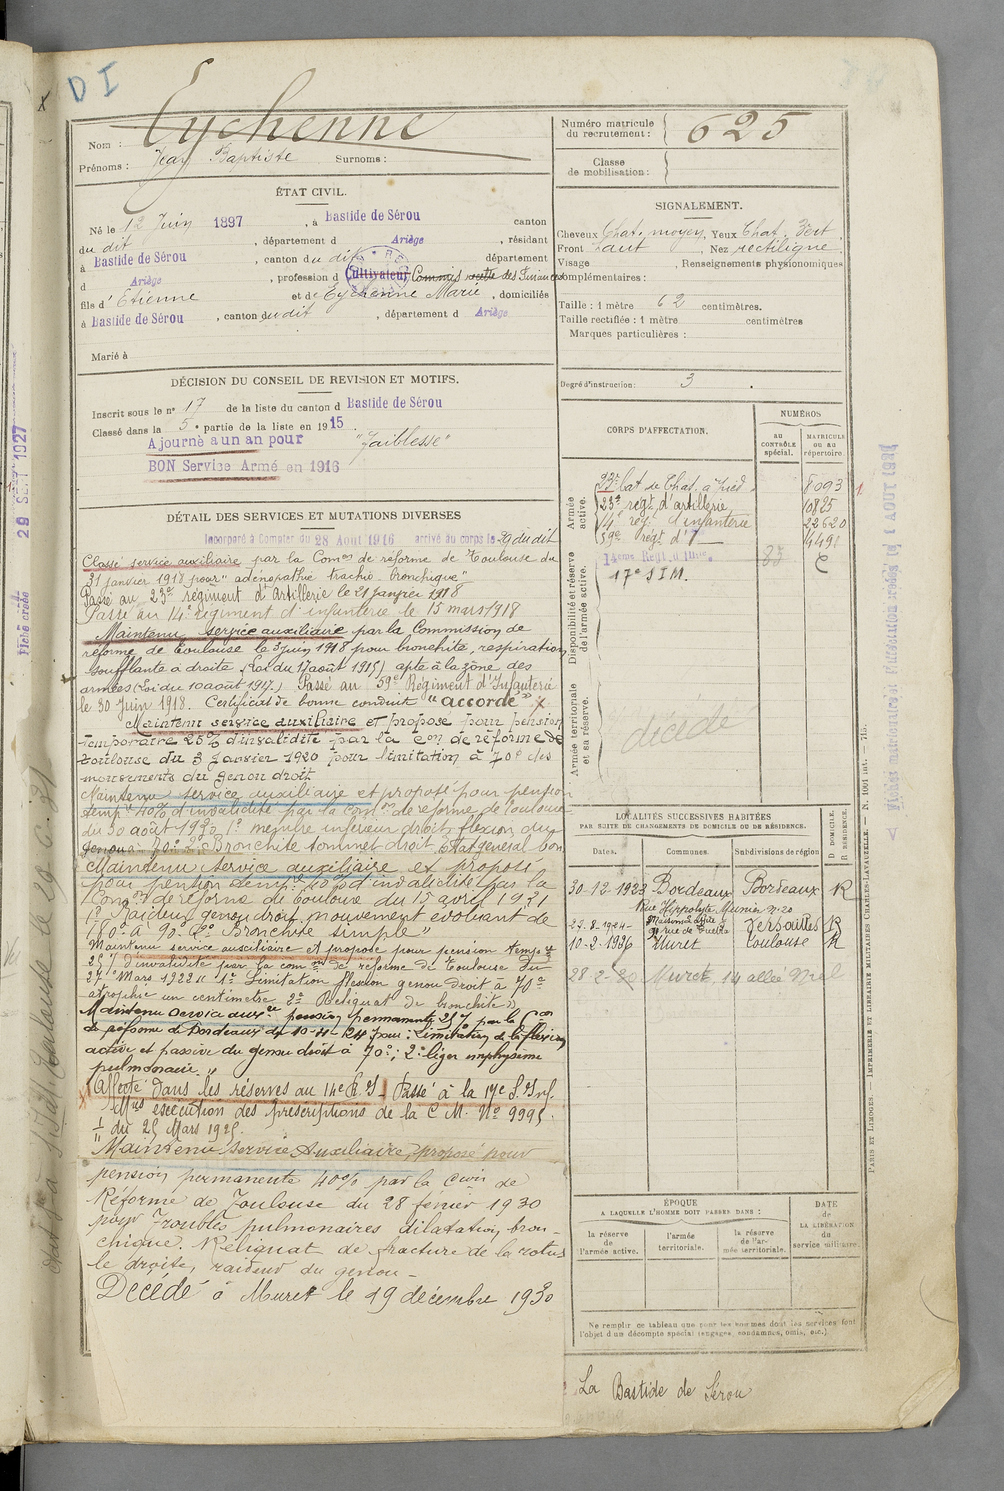 D I
Nom : Eychenne
Prénoms : Jean Baptiste Surnoms :
Numéro matricule du recrutement : 625
Classe de mobilisation :
ÉTAT CIVIL.
Né le 12 Juin 1897, à Bastide de Sérou canton
du dit, département d Ariège, résidant
à Bastide de Sérou, canton du dit département
d Ariège, profession d Cultivateur Commis des Finances
fils d' Etienne et de Eychenne Marie, domiciliés
à Bastide de Sérou, canton du dit, département d Ariège
Marié à
SIGNALEMENT.
Cheveux Chat. moyen, Yeux Chat. Vert
Front haut, Nez rectiligne
Visage , Renseignements physionomiques
complémentaires :
Taille : 1 mètre 62 centimètres.
Taille rectifiée : 1 mètre centimètres
Marques particulières :
Degré d'instruction : 3
DÉCISION DU CONSEIL DE REVISION ET MOTIFS.
Inscrit sous le n° 17 de la liste du canton d Bastide de Sérou
Classé dans la 5e partie de la liste en 1915
Ajourné a un an pour "Faiblesse"
BON Service Armé en 1916
CORPS D'AFFECTATION.
NUMÉROS
AU CONTRÔLE spécial.
MATRICULE ou au répertoire.
Armée active.
23e Bat de Chas. à pied 8093
23e regt d'artillerie 10825
14e reg. d'infanterie 22620
59e regt d' 4491
14eme Regt d'Infie
17e S I M.
Disponibilité et réserve de l'armée active.
Armée territoriale et sa réserve.
décédé
DÉTAIL DES SERVICES ET MUTATIONS DIVERSES
Incorporé à Compter du 28 Août 1916 arrivé au corps le 29 du dit
Classé service auxiliaire par la Comon de réforme de Toulouse du
31 janvier 1918 pour "adénopathie trachéo bronchique"
Passé au 23e régiment d'Artillerie le 21 janvier 1918
Passé au 14e régiment d'infanterie le 15 mars 1918
Maintenu service auxiliaire par la Commission de
réforme de Toulouse le 3 juin 1918 pour bronchite, respiration
soufflante à droite (Loi du 17 août 1915) apte à la zône des
armées (Loi du 10 août 1917.) Passé au 59e Régiment d'Infanterie
le 30 Juin 1918. Certificat de bonne conduite "accordé"
Maintenu service auxiliaire et proposé pour pension
temporaire 25% d'invalidité par la Con de réforme de
Toulouse du 3 Janvier 1920 pour limitation à 70° des
mouvements du genou droit.
Maintenu service auxiliaire et proposé pour pension
temp 40% d'invalidité par la Comon de réforme de Toulouse
du 30 août 1920 1° membre inférieur droit, flexion du
genou 70° 2° Bronchite sommet droit. Etat general bon
Maintenu service auxiliaire et proposé
pour pension temp. 40% d'invalidité par la
Con de réforme de Toulouse du 15 avril 1921
1° Raideur genou droit mouvement évoluant de
180° à 90° 2° Bronchite simple"
Maintenu service auxiliaire et proposé pour pension tempre
25% d'invalidité par la comon de réforme de Toulouse du
27 Mars 1922 1° Limitation flexion genou droit à 70°
atrophie un centimètre 2° Reliquat de bronchite
Maintenu Service auxre pension permanente 25% par la Con
de réforme de Bordeaux du 10-11-24 pour : Limitation de la flexion
active et passive du genou droit à 70° ; 2° léger emphysème
pulmonaire.
Affecté dans les réserves au 14e R.I. Passé à la 17e S. Inf.
Mres exécution des prescriptions de la C M. No 9995
du 25 Mars 1925.
Maintenu Service Auxiliaire, proposé pour
pension permanente 40% par la Coon de
Réforme de Toulouse du 28 février 1930
pour Troubles pulmonaires dilatation bron-
chique. Reliquat de fracture de la rotu
le droite, raideur du genou -
Décédé à Muret le 19 décembre 1930
LOCALITÉS SUCCESSIVES HABITÉES
PAR SUITE DE CHANGEMENTS DE DOMICILE OU DE RÉSIDENCE.
Dates. Communes. Subdivisions de région D DOMICILE. R RÉSIDENCE.
30-12-1923 Bordeaux Bordeaux R
Rue Hippolyte Minier n° 20
27-8-1924 Maisons Laffitte Versailles R
10-2-1926 Muret Toulouse R
28-2-30 Muret, 14 allée Niel
ÉPOQUE
A LAQUELLE L'HOMME DOIT PASSER DANS :
la réserve de l'armée active.
l'armée territoriale.
la réserve de l'armée territoriale.
DATE de LA LIBÉRATION du service militaire.
Ne remplir ce tableau que pour les hommes dont les services font
l'objet d'un décompte spécial (engagés, condamnés, omis, etc.)
La Bastide de Sérou
PARIS ET LIMOGES. — IMPRIMERIE ET LIBRAIRIE MILITAIRES CHARLES-LAVAUZELLE. — N. 1001 int. — 715.
Fiche créée